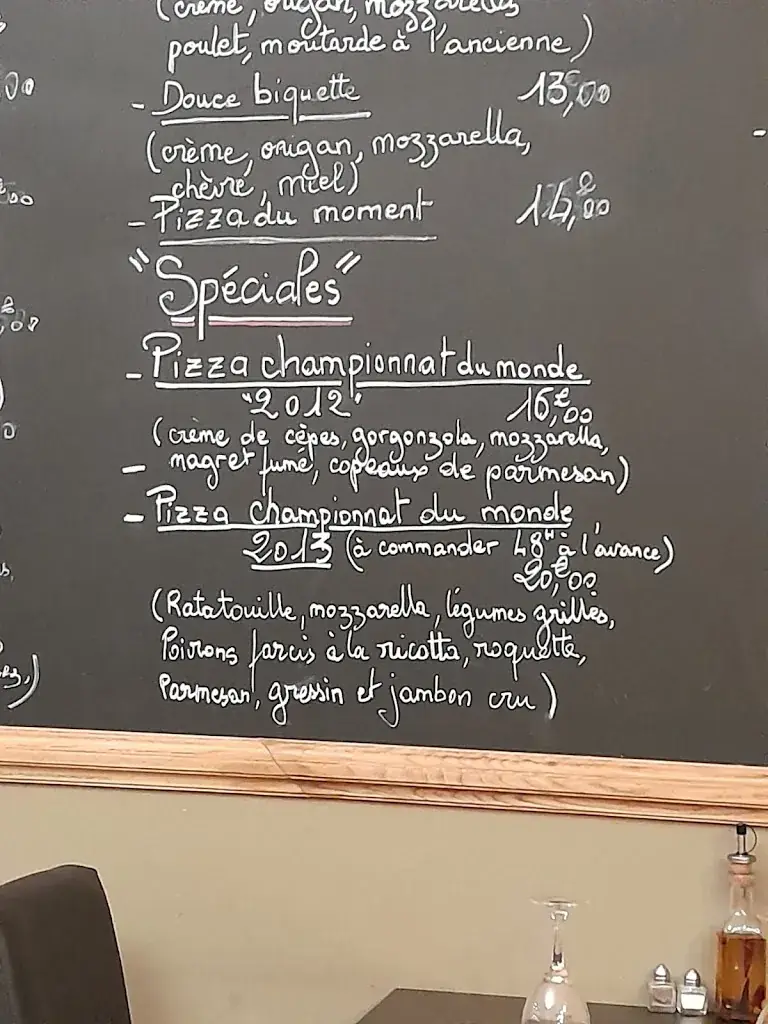 (crème, origan, mozzarella
poulet, moutarde à l'ancienne)
- Douce biquette 13,00
(crème, origan, mozzarella,
chèvre, miel)
- Pizza du moment 14,€00
"Spéciales"
- Pizza championnat du monde
"2012" 16,€00
(crème de cèpes, gorgonzola, mozzarella,
- magret fumé, copeaux de parmesan)
- Pizza championnat du monde
2013 (à commander 48H à l'avance)
20€00
(Ratatouille, mozzarella, légumes grillés,
Poivrons farcis à la ricotta, roquette,
Parmesan, gressin et jambon cru)